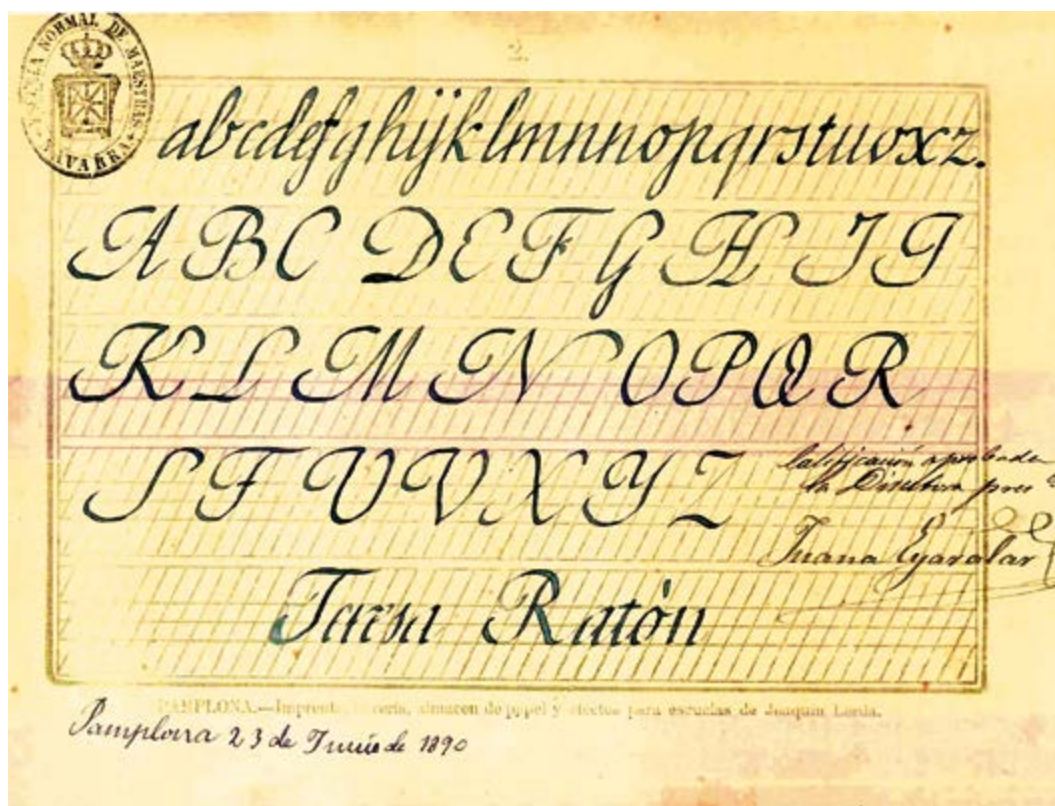 ESCUELA NORMAL DE MAESTRAS
NAVARRA
2.
abcdefghijklmnnopqrstuvxz.
A B C D E F G H I J
K L M N O P Q R
S T U V X Y Z
Calificación aprobada
la Directora
Juana Eyaralar
Tarsa Ratón
PAMPLONA.—Imprenta, librería, almacen de papel y efectos para escuelas de Joaquin Lorda.
Pamplona 23 de Junio de 1890